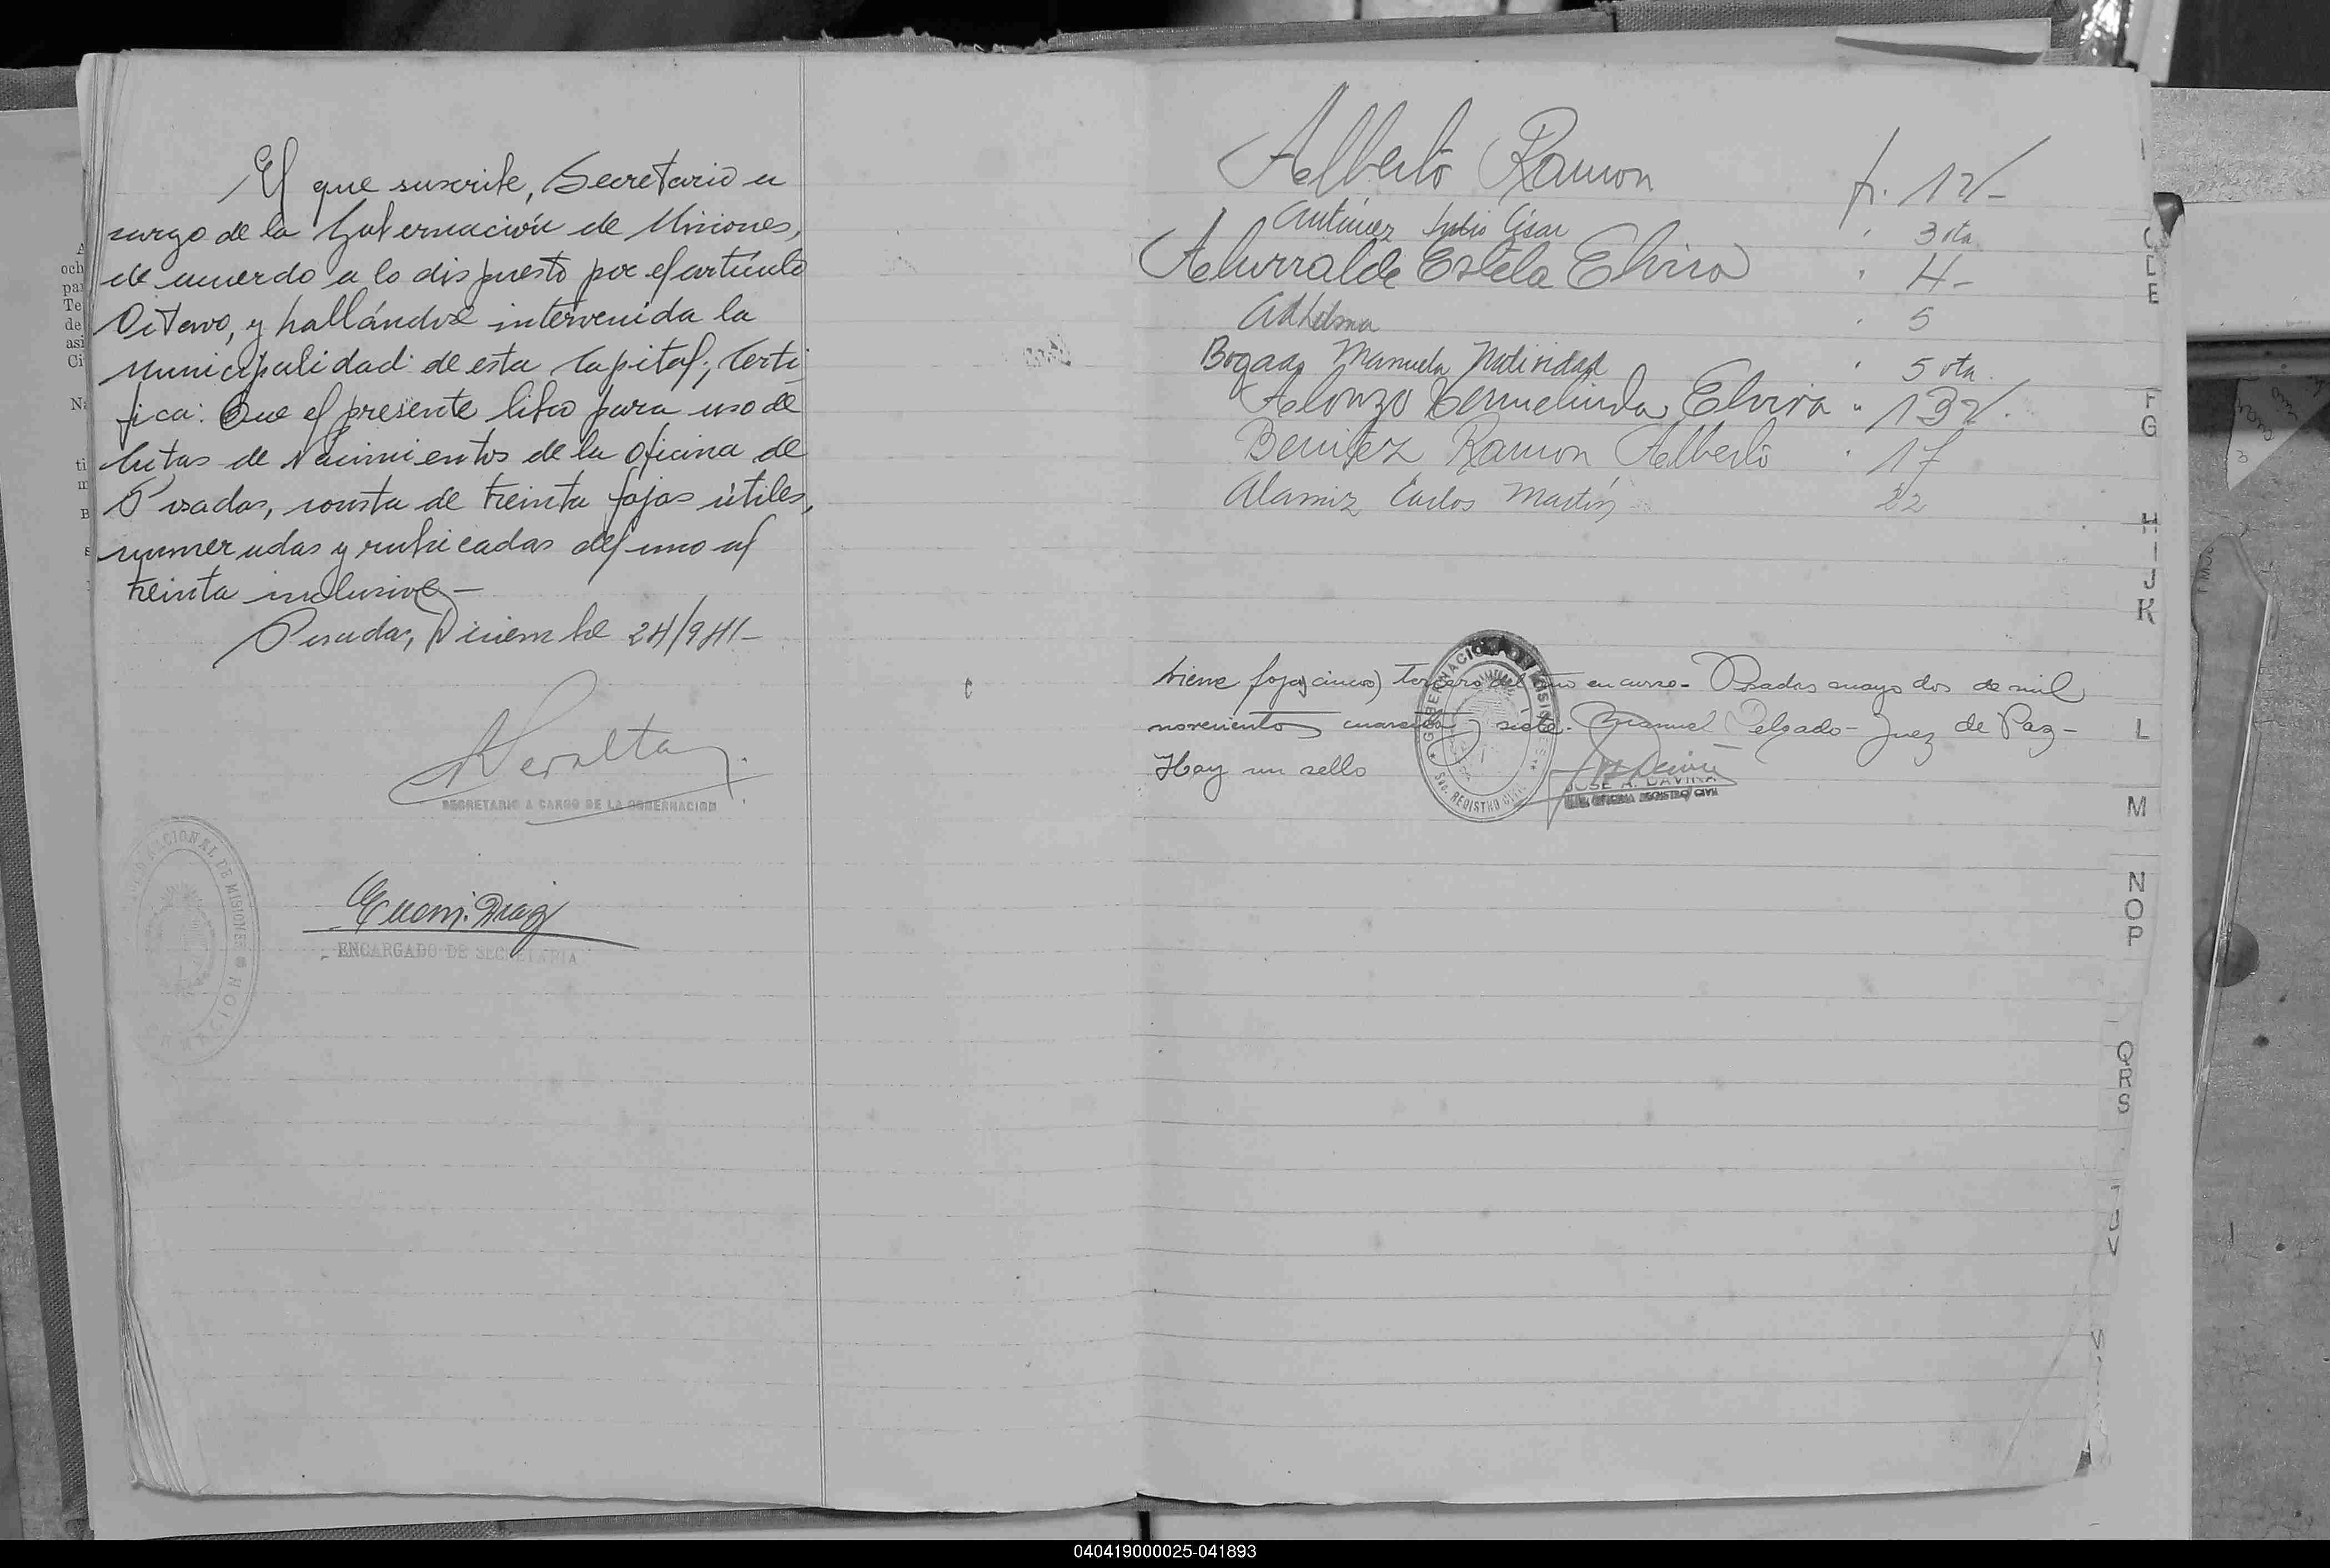 El que suscribe, Secretario a
cargo de la Gobernación de Misiones,
de acuerdo a lo dispuesto por el artículo
Octavo, y hallándose intervenida la
Municipalidad de esta Capital; Certi
fica: Que el presente libro para uso de
Actas de Nacimientos de la oficina de
Posadas, consta de treinta fojas útiles,
numeradas y rubricadas del uno al
treinta inclusive-
Posadas, Diciembre 24/941-
Peralta
SECRETARIO A CARGO DE LA GOBERNACION
NACIONAL DE MISIONES
ENCARGADO DE SECRETARIA
Alberto Ramon f. 12/-
Antúnez Julio César " 3 vta
Alurralde Estela Elvira " 4-
" 5
Bogado Manuela Natividad " 5 vta
Alonzo Elvira " 132/.
Benitez Ramon Alberto " 17
Alamiz Carlos Martín 22
tiene foja cinco) tercero del año en curso- Posadas mayo dos de mil
novecientos cuarenta y siete- Manuel Delgado- Juez de Paz-
Hay un sello
GOBERNACION DE MISIONES
REGISTRO CIVIL
JOSE A. DAVIÑA
OFICINA REGISTRO CIVIL
C
D
E
F
G
H
I
J
K
L
M
N
O
P
Q
R
S
T
U
V
040419000025-041893